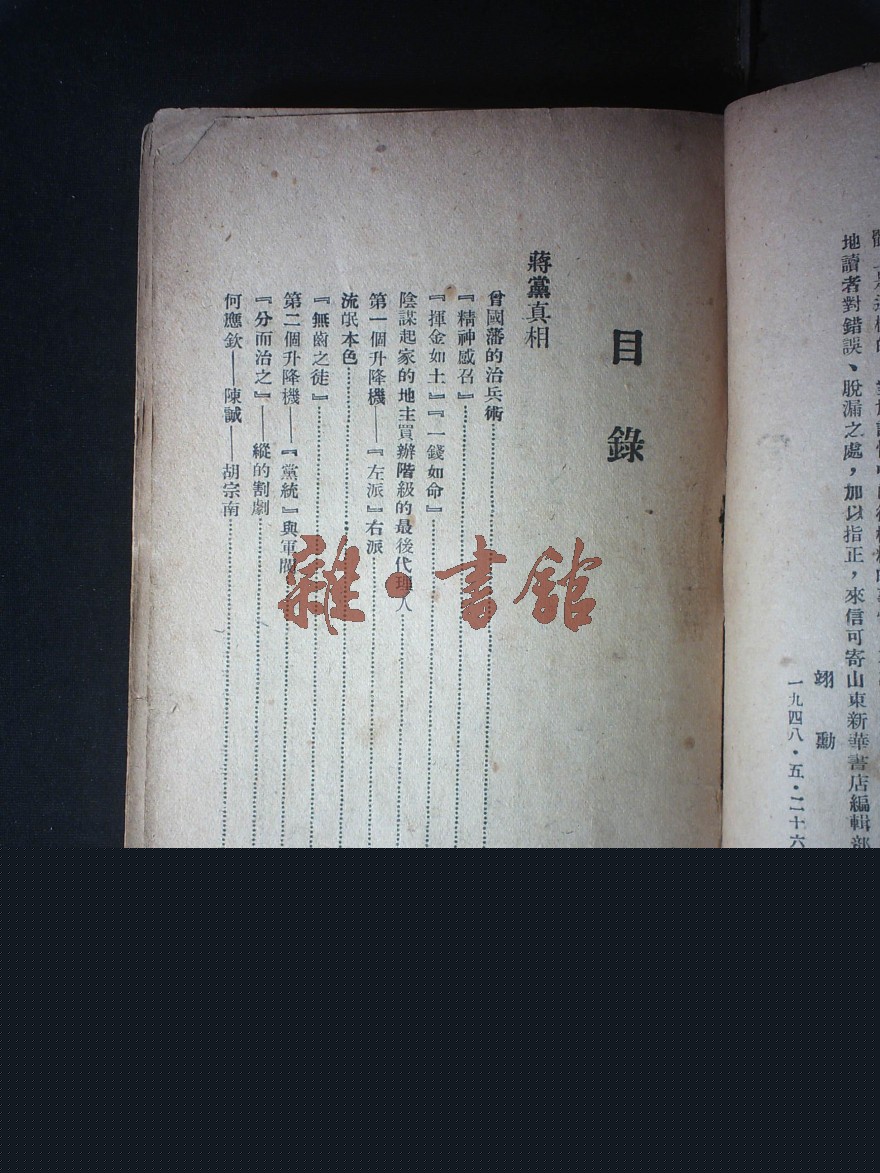 地讀者對錯誤、脫漏之處，加以指正，來信可寄山東新華書店編輯部
翊勳
一九四八·五·二十六
目錄
蔣黨真相
曾國藩的治兵術
『精神感召』
『揮金如土』『一錢如命』
陰謀起家的地主買辦階級的最後代理人
第一個升降機——『左派』右派
流氓本色
『無齒之徒』
第二個升降機——『黨統』與軍閥
『分而治之』——縱的割劇
何應欽——陳誠——胡宗南
雜·書館